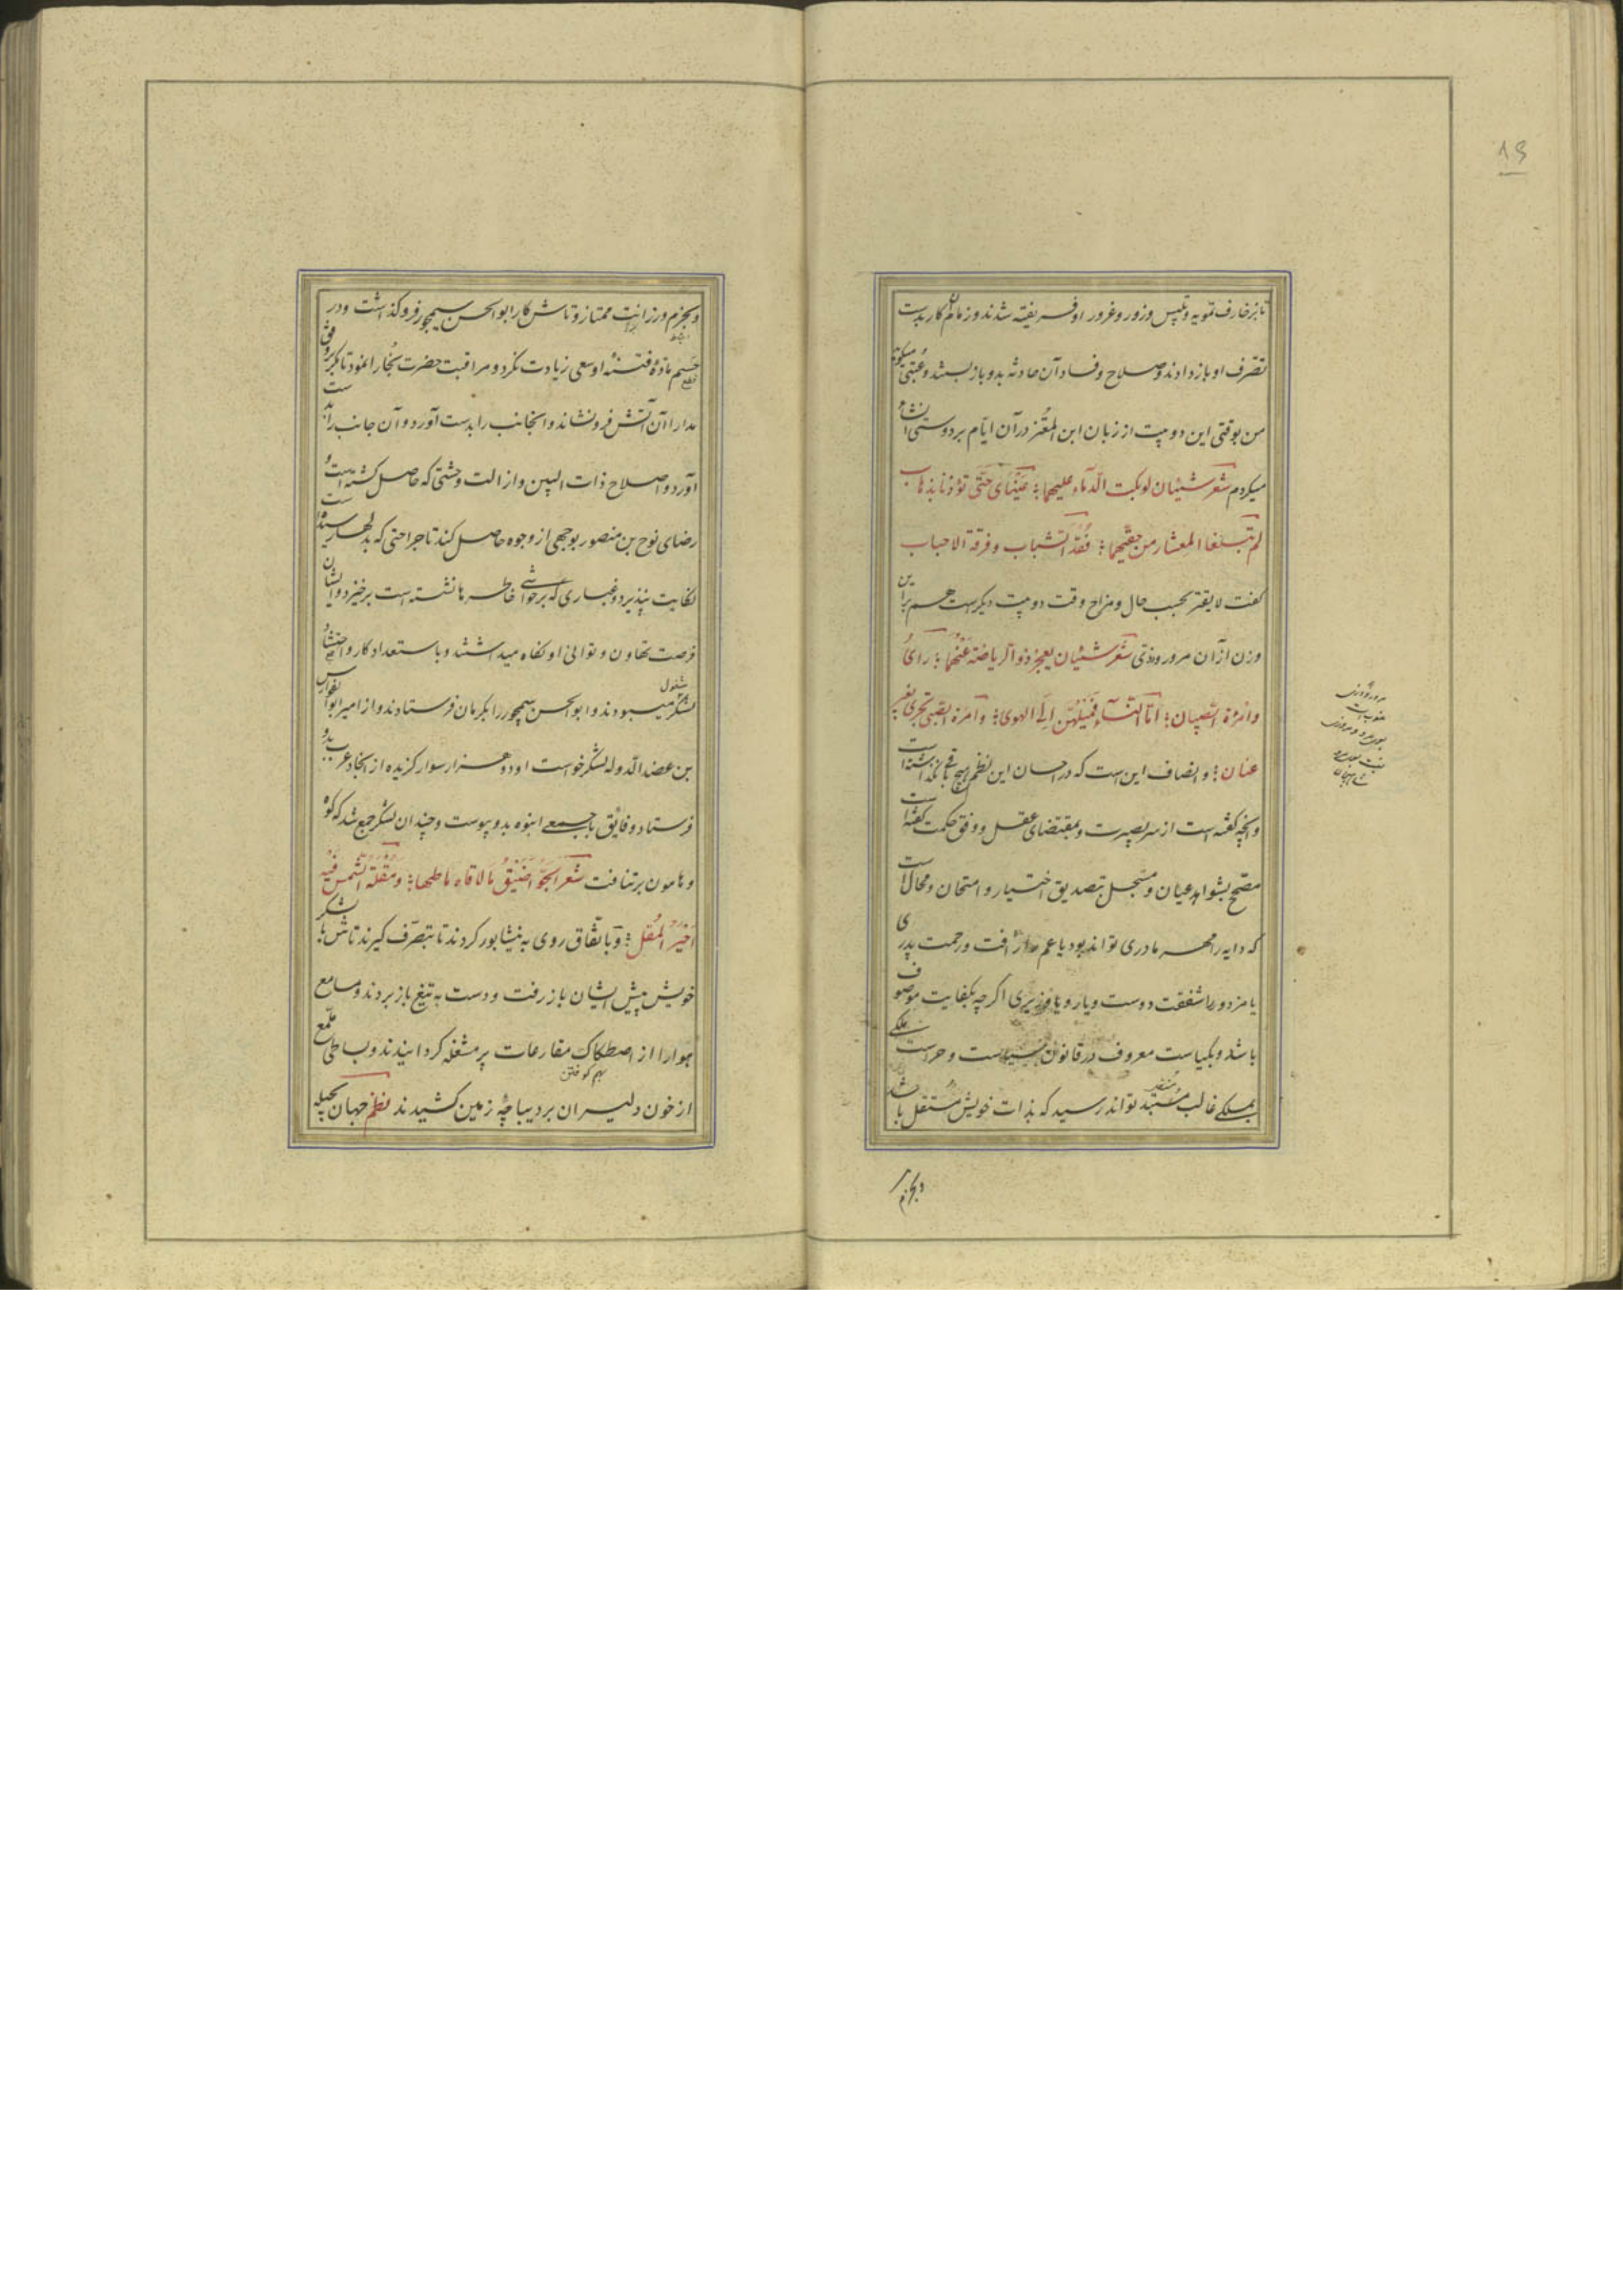 ۱۹
تا بزخارف تمویه و تلبیس وزور و غرور او فریفته شدند و زمام کار بدست
تصرف او باز دادند و صلاح و فساد آن حادثه بدو باز بستند و عتبی میگوید
من بوقتی این دو بیت از زبان ابن المعتز در آن ایام بر دوستی انشاء
میکردم شعر شیئان لو بکت الدماء علیهما؛ عینای حتی تؤذنا بذهاب
لم تبلغا المعشار من حقیهما؛ فقد الشباب و فرقة الاحباب
گفت لا یفتر بحسب حال و مزاج وقت دو بیت دیگرست هم براین
وزن از آن مرورودی شعر شیئان یعجز ذو الریاضة عنهما؛ رای
وامرة الصبیان؛ اما النساء فمیلهن الی الهوی؛ وامرة الصبی تجری بغیر
عنان؛ و انصاف این است که در احسان این نظم هیچ باقی نگذاشته است
و آنچه گفته است از سر بصیرت و بمقتضای عقل و وفق حکمت گفته است
مصحح بشواهد عیان و مسجل بتصدیق اختبار و امتحان و محال است
که دایه را مهر مادری تواند بود یا عم را رأفت و رحمت پدری
یا مزدور را شفقت دوست و یار و یا وزیری اگر چه بکفایت موصوف
باشد و بکیاست معروف در قانون سیاست و حراست ملکی
بملکی غالب مستبد تواند رسید که بذات خویش مستقل باشد
منفرد
مرورودی
منسوبست
وبحزم
وبحزم و رزانت ممتاز و تاش کار ابوالحسن سیمجور فرو گذاشت و در
حسم ماده فتنه او سعی زیادت نکرد و مراقبت حضرت بخارا نمود تا مگر برفق
قطع
مدارا آن آتش فرو نشاند و اینجانب را بدست آورد و آن جانب را بدست
آورد و اصلاح ذات البین و ازالت وحشتی که حاصل گشته است و
رضای نوح بن منصور بوجهی از وجوه حاصل کند تا جراحتی که بدلها رسیده است
نکایت نپذیرد و غباری که بر حواشی خاطرها نشسته است برخیزد و ایشان
فرصت تهاون و توانی او نگاه میداشتند و باستعداد کار و احتشاد
لشکر مشغول میبودند و ابوالحسن سیمجور را بکرمان فرستادند و از امیر ابوالفوارس
بن عضد الدوله لشکر خواست او دو هزار سوار گزیده از انجاد عرب بدو
فرستاد و فایق با جمعی انبوه بدو پیوست و چندان لشکر جمع شد که کوه
و هامون برنتافت شعر الجو اضیق ما لاقاه ساطعها؛ و مقلة الشمس فیه
احیر المقل؛ و باتفاق روی به نیشابور کردند تا بتصرف گیرند تاش با لشکر
خویش پیش ایشان باز رفت و دست به تیغ باز بردند و مسامع
هوا را از اصطکاک مقارعات پر مشغله گردانیدند و بساطی ملمع
بهم کوفتن
از خون دلیران بر دیباچه زمین کشیدند نظم جهان